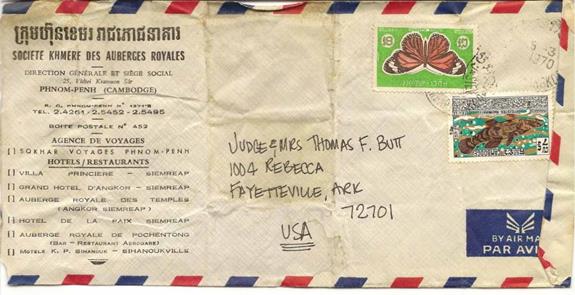 ក្រុមហ៊ុនខេមររាជគោជនាគារ
SOCIETE KHMERE DES AUBERGES ROYALES
DIRECTION GÉNÉRALE ET SIÈGE SOCIAL
25, Vithei Kramuon Sar
PHNOM-PENH (CAMBODGE)
R. C. PHNOM-PENH N° 1271"B
TEL. 2.4261 - 2.5452 - 2.5495
BOITE POSTALE N° 452
AGENCE DE VOYAGES
[ ] SOKHAR VOYAGES PHNOM-PENH
HOTELS/RESTAURANTS
[ ] VILLA PRINCIERE - SIEMREAP
[ ] GRAND HOTEL D'ANGKOR - SIEMREAP
[ ] AUBERGE ROYALE DES TEMPLES
(ANGKOR SIEMREAP)
[ ] HOTEL DE LA PAIX SIEMREAP
[ ] AUBERGE ROYALE DE POCHENTONG
(BAR - RESTAURANT AEROGARE)
[ ] MOTELS K. P. SIHANOUK - SIHANOUKVILLE
JUDGE & MRS THOMAS F. BUTT
1004 REBECCA
FAYETTEVILLE, ARK
72701
USA
1970
BY AIR MA
PAR AVI